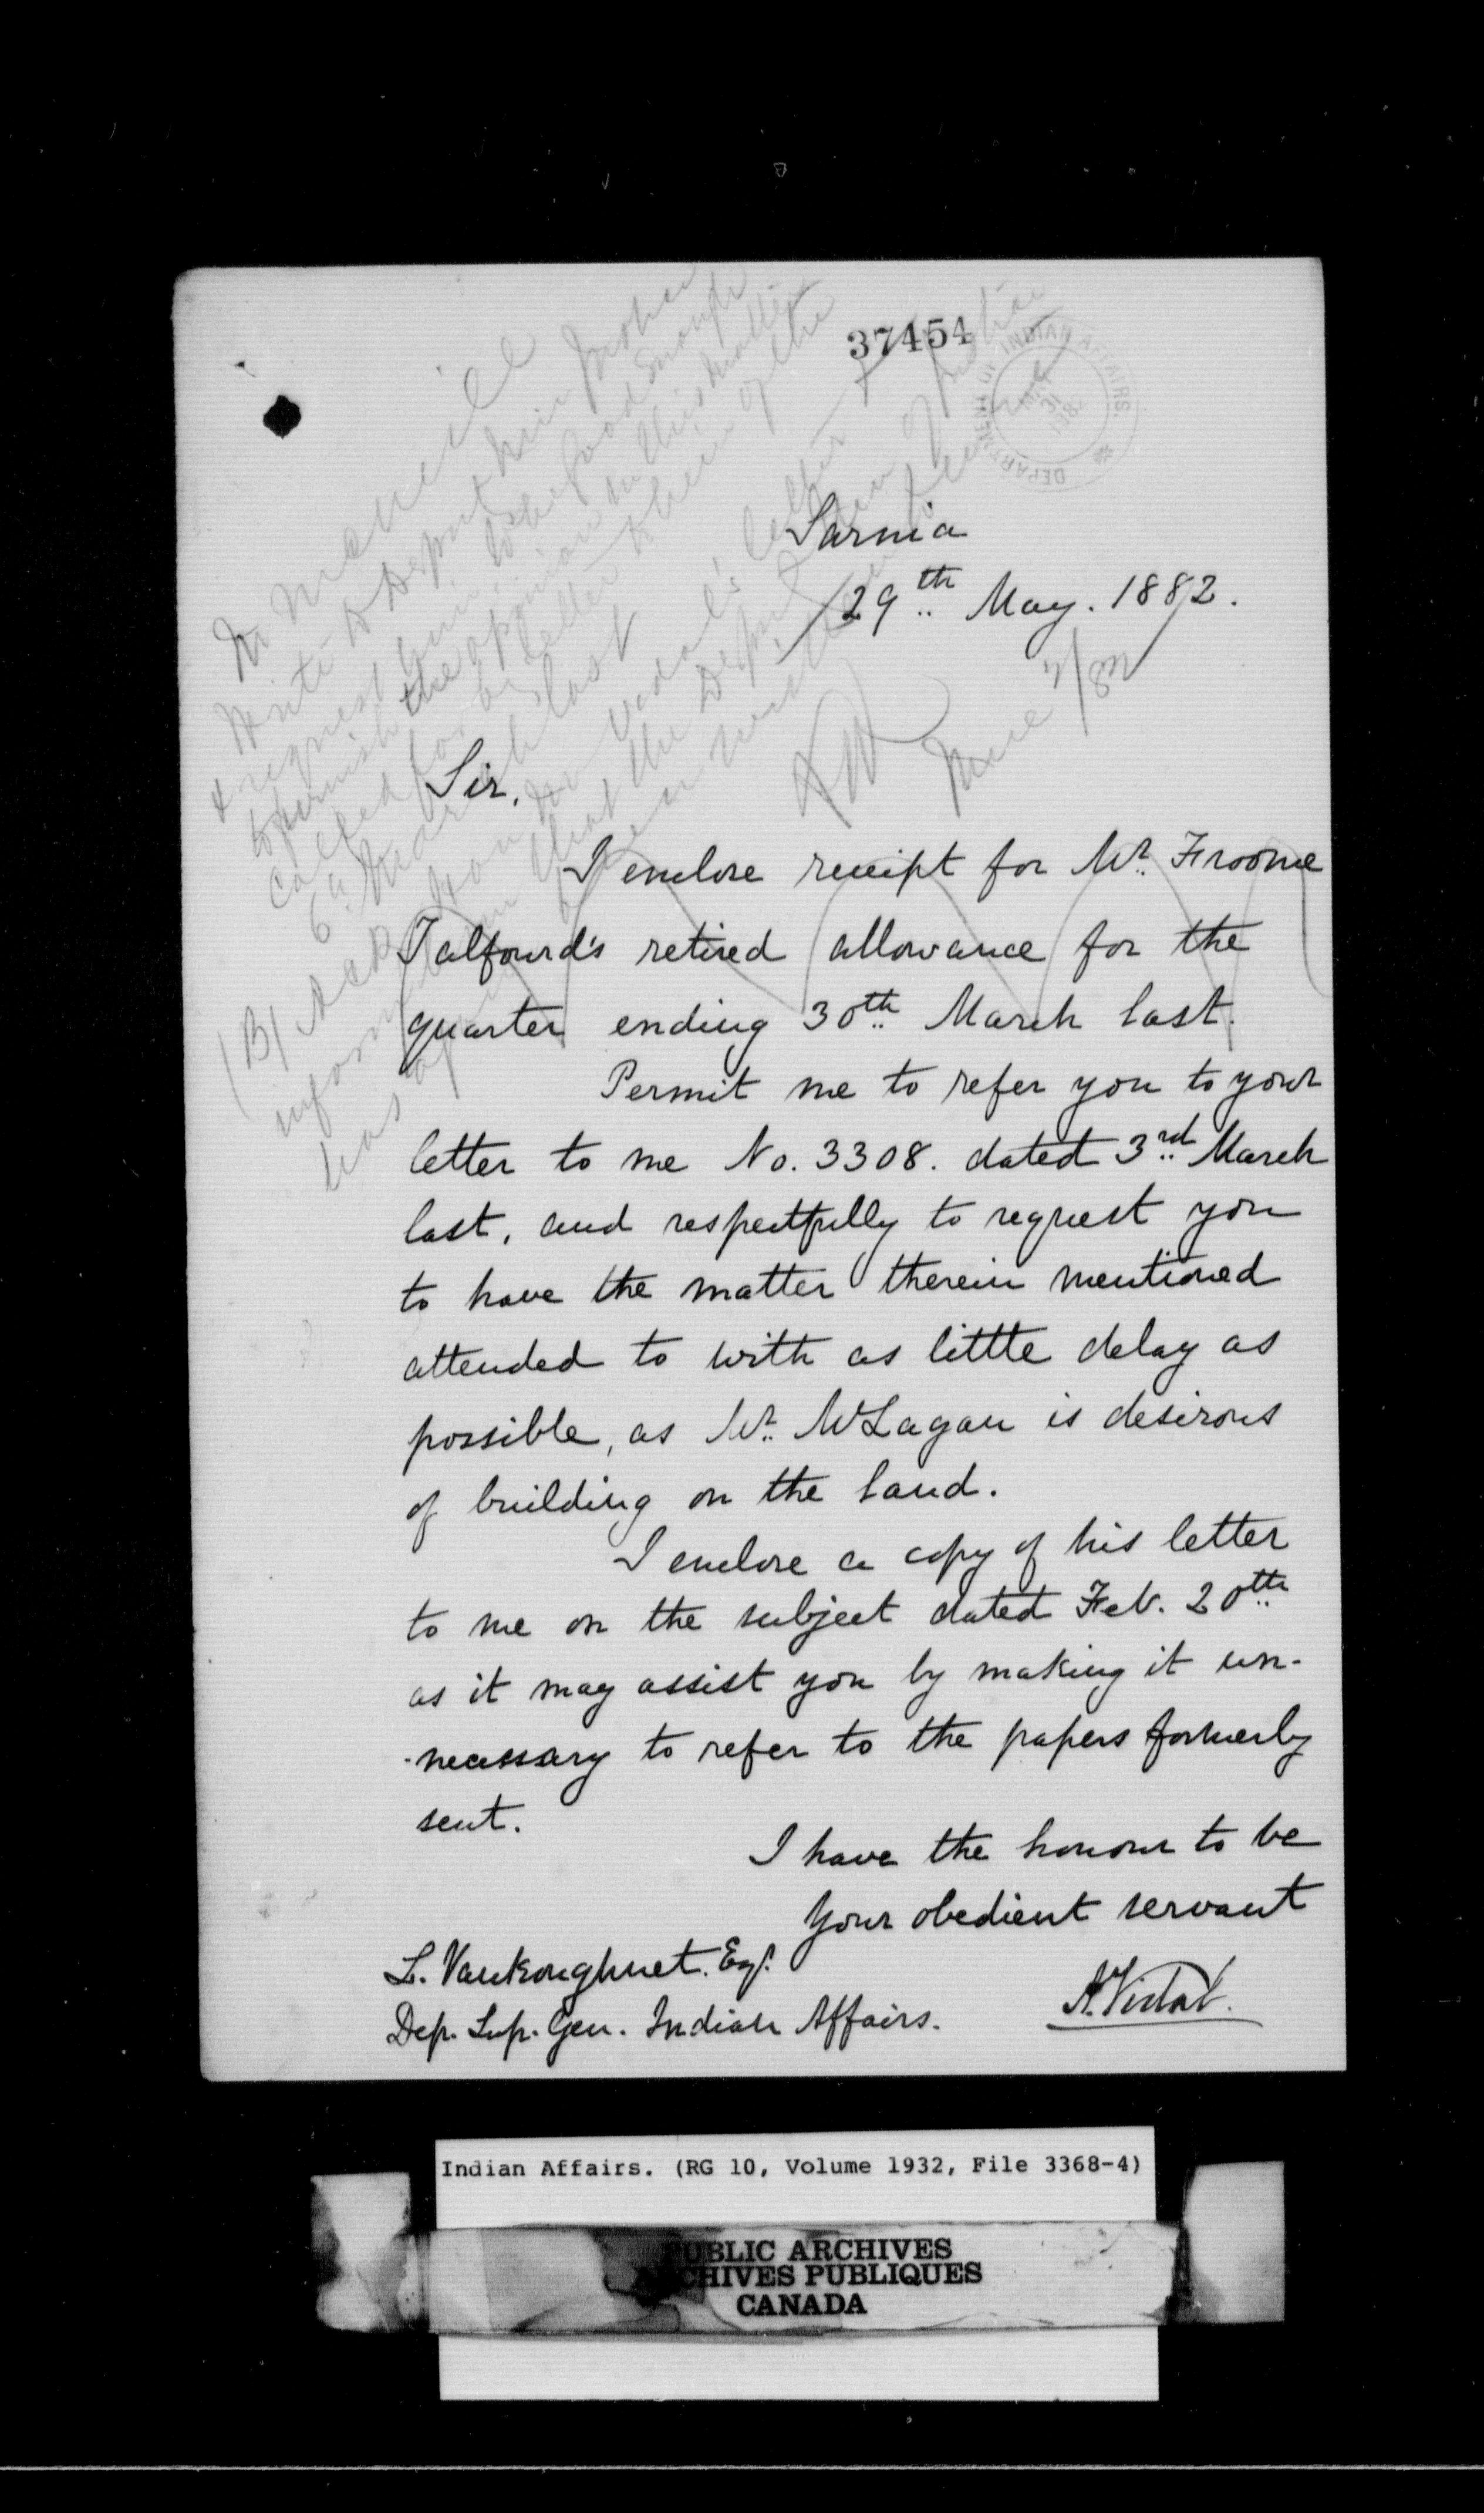 37454
DEPARTMENT OF INDIAN AFFAIRS.
31
1882
Sarnia
29th May. 1882.
Sir,
I enclose receipt for Mr. Froome
Talfourd's retired allowance for the
quarter ending 30th March last.
Permit me to refer you to your
letter to me No. 3308. dated 3rd March
last, and respectfully to request you
to have the matter therein mentioned
attended to with as little delay as
possible, as Mr. McLagan is desirous
of building on the land.
I enclose a copy of his letter
to me on the subject dated Feb. 20th
as it may assist you by making it un-
-necessary to refer to the papers formerly
sent.
I have the honour to be
Your obedient servant
L. Vankoughnet. Esq.
A. Vidal.
Dep. Sup. Gen. Indian Affairs.
Mr McNeill
Write to Dept
& request him to be good enough
to furnish the opinion in this matter
called for by letter to him of the
6th March last
(B) Ack Hon Mr Vidal's letter &
inform him that the Dept of Justice
has again been written to
June 2/82
Indian Affairs. (RG 10, Volume 1932, File 3368-4)
PUBLIC ARCHIVES
ARCHIVES PUBLIQUES
CANADA